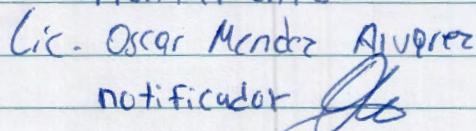 Lic. Oscar Mendez Alvarez
notificador